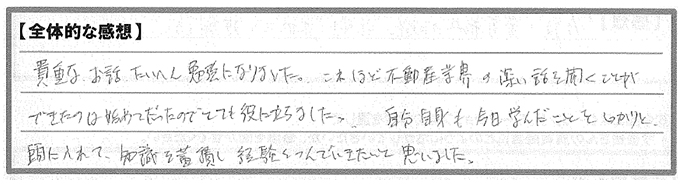 【全体的な感想】
貴重なお話 たいへん勉強になりました。これほど不動産業界の深い話を聞くことが
できたのは始めてだったのでとても役に立ちました。 自分自身も今日学んだことをしっかりと
頭に入れて、知識を蓄積し経験をつんでいきたいと思いました。